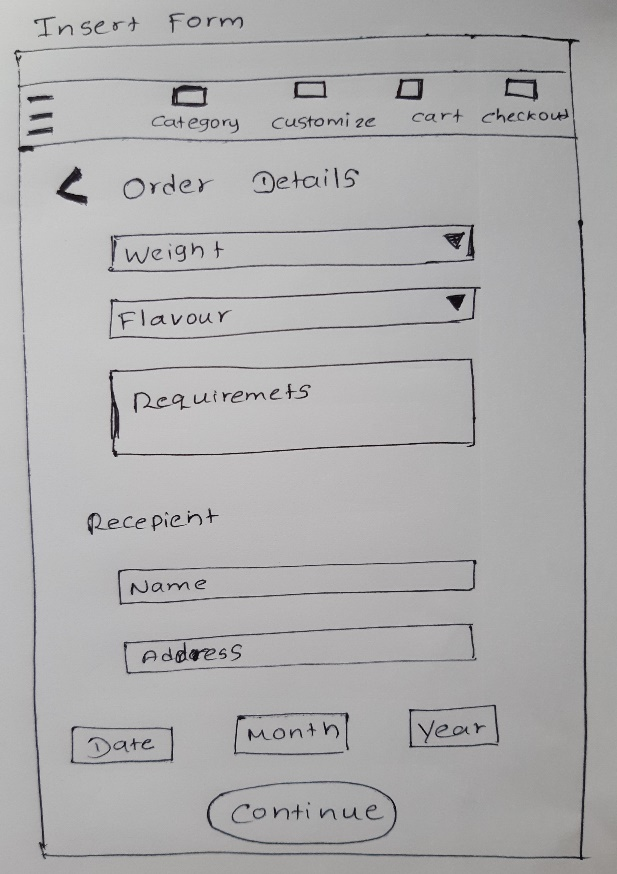 Insert Form
Category customize cart checkout
Order Details
Weight
Flavour
Requiremets
Recepient
Name
Address
Date Month Year
Continue